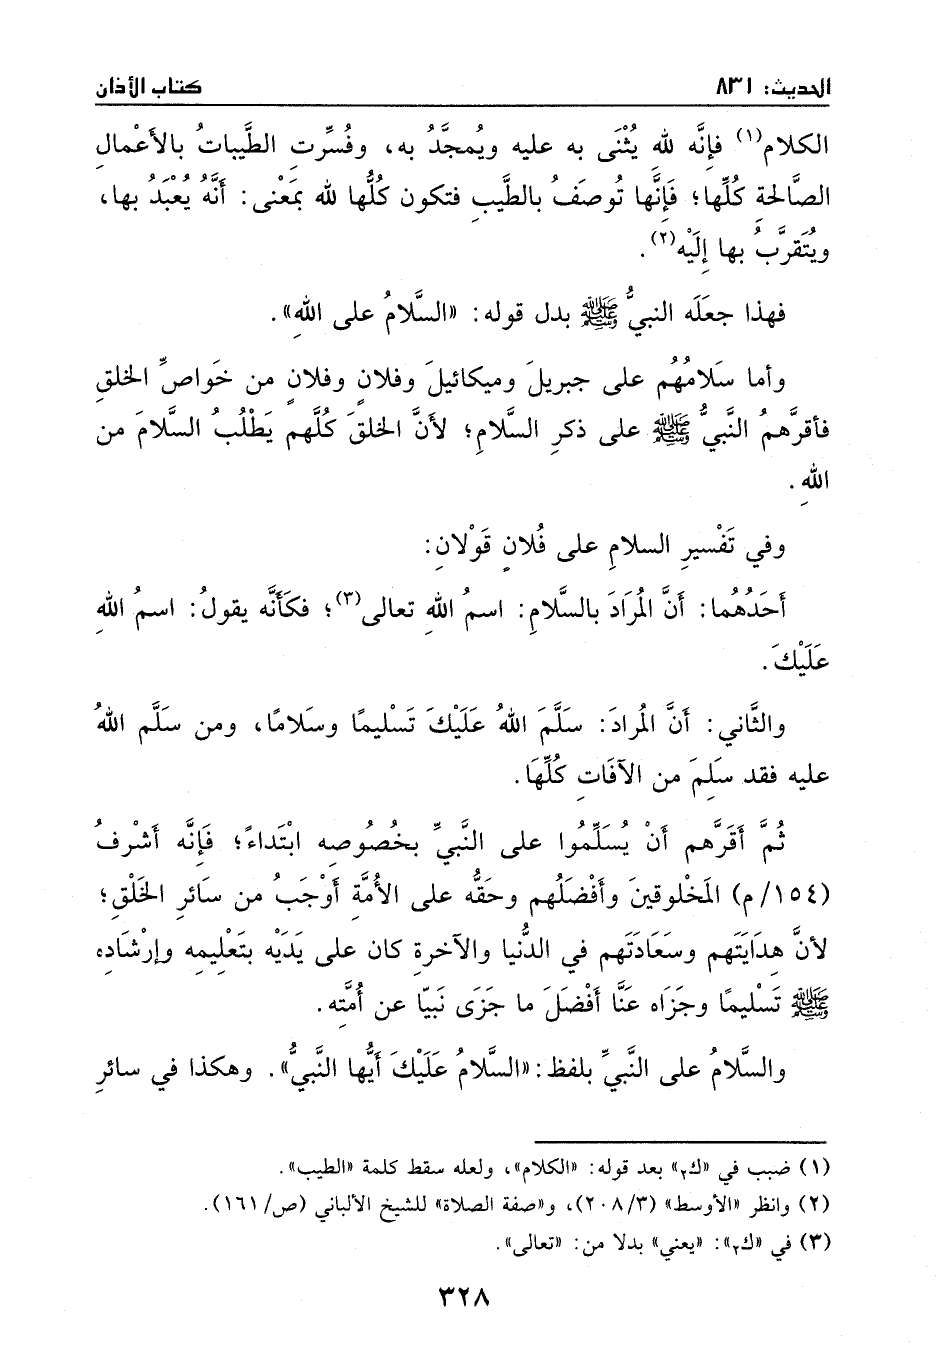 الحديث: ٨٣١
كتاب الأذان
الكلام(١) فإنَّه لله يُثْنَى به عليه ويُمجَّدُ به، وفُسِّرت الطَّيباتُ بالأَعْمالِ
الصَّالحةِ كُلِّها؛ فَإنَّها تُوصَفُ بالطَّيبِ فتكون كُلُّها لله بمَعْنى: أَنَّهُ يُعْبَدُ بها،
ويُتَقرَّبُ بها إِلَيْه(٢).
فهذا جعَلَه النبيُّ ﷺ بدل قوله: «السَّلامُ على اللهِ».
وأما سَلامُهُم على جبريلَ وميكائيلَ وفلانٍ وفلانٍ من خَواصِّ الخلقِ
فأقرَّهمُ النَّبيُّ ﷺ على ذكرِ السَّلامِ؛ لأنَّ الخلقَ كُلَّهم يَطْلُبُ السَّلامَ من
اللهِ.
وفي تَفْسيرِ السلامِ على فُلانٍ قَوْلانِ:
أَحَدُهُما: أَنَّ المُرَادَ بالسَّلامِ: اسمُ اللهِ تعالى(٣)؛ فكَأَنَّه يقولُ: اسمُ اللهِ
عَلَيْكَ.
والثَّاني: أَنَّ المُرادَ: سَلَّمَ اللهُ عَلَيْكَ تَسْليمًا وسَلامًا، ومن سَلَّم اللهُ
عليه فقد سَلِمَ من الآفَاتِ كُلِّهَا.
ثُمَّ أَقرَّهم أَنْ يُسَلِّمُوا على النَّبيِّ بخُصُوصِه ابْتداءً؛ فَإِنَّه أَشْرفُ
(١٥٤/ م) المَخْلوقينَ وأَفْضَلُهم وحَقُّه على الأُمَّةِ أَوْجَبُ من سَائرِ الخَلْقِ؛
لأنَّ هِدَايَتَهم وسَعَادَتَهم في الدُّنيا والآخرةِ كان على يَدَيْه بتَعْليمِه وإرْشَادِه
ﷺ تَسْليمًا وجَزَاه عَنَّا أَفْضَلَ ما جَزَى نَبيّا عن أُمَّتِه.
والسَّلامُ على النَّبيِّ بلفظ: «السَّلامُ عَلَيْكَ أَيُّها النَّبيُّ». وهكذا في سائرِ
(١) ضبب في «ك٢» بعد قوله: «الكلام»، ولعله سقط كلمة «الطيب».
(٢) وانظر «الأوسط» (٢٠٨/٣)، و«صفة الصلاة» للشيخ الألباني (ص/١٦١).
(٣) في «ك٢»: «يعني» بدلا من: «تعالى».
٣٢٨